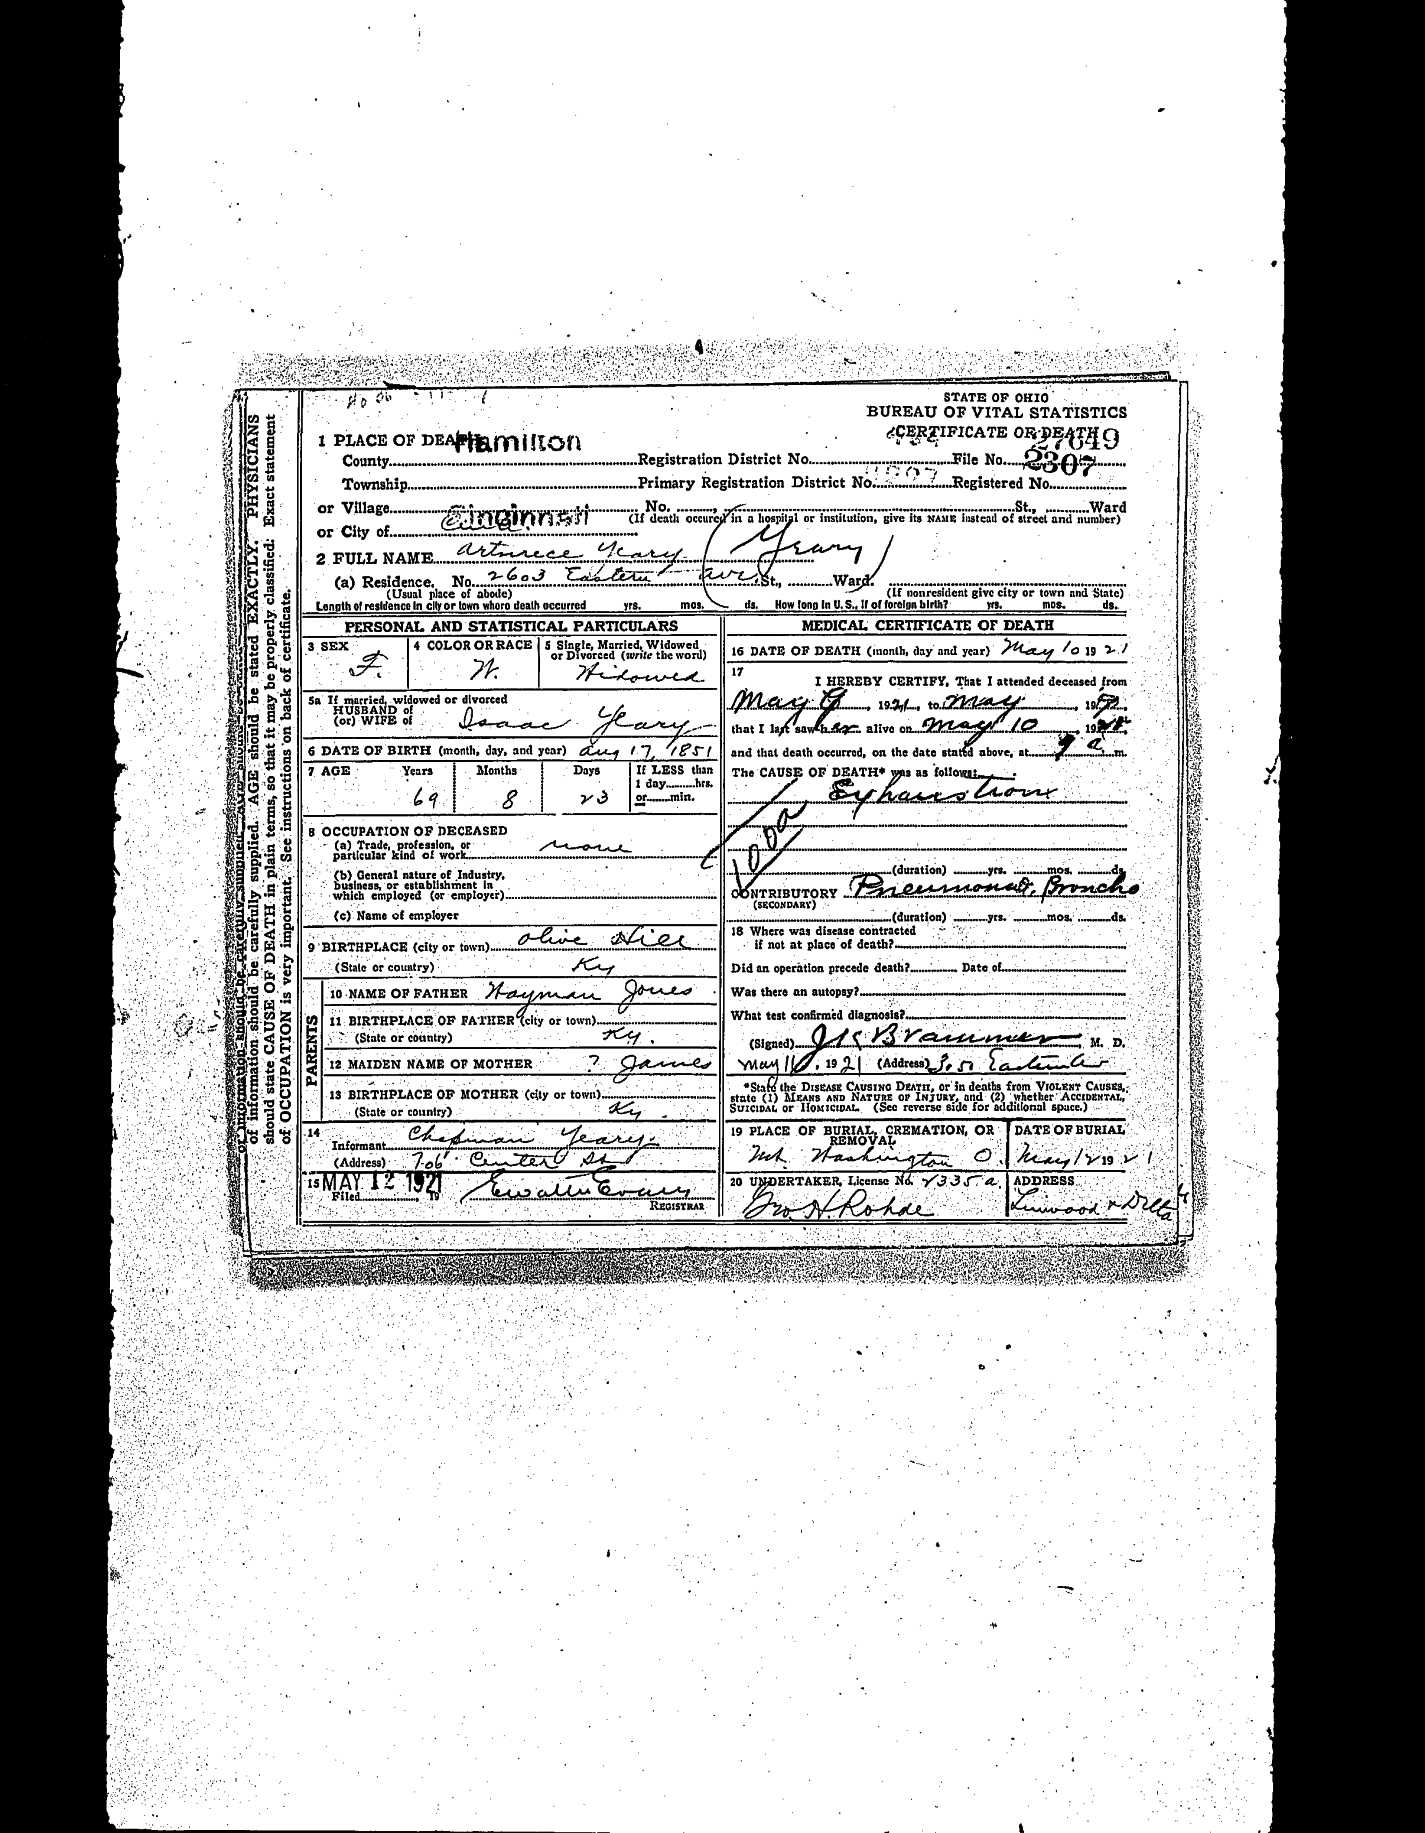 STATE OF OHIO
BUREAU OF VITAL STATISTICS
CERTIFICATE OF DEATH
1 PLACE OF DEATH
Hamilton
27049
County Registration District No. File No.
2307
Township Primary Registration District No. Registered No.
or Village No. St., Ward
Cincinnati
(If death occured in a hospital or institution, give its NAME instead of street and number)
or City of
2 FULL NAME Yeary (Yeary)
(a) Residence. No. 2603 Eastern Ave. St., Ward.
(Usual place of abode) (If nonresident give city or town and State)
Length of residence in city or town where death occurred yrs. mos. ds. How long in U. S., if of foreign birth? yrs. mos. ds.
PERSONAL AND STATISTICAL PARTICULARS
3 SEX
F.
4 COLOR OR RACE
W.
5 Single, Married, Widowed
or Divorced (write the word)
Widowed
5a If married, widowed or divorced
HUSBAND of
(or) WIFE of Isaac Yeary
6 DATE OF BIRTH (month, day, and year) Aug 17, 1851
7 AGE Years Months Days If LESS than
1 day hrs.
or min.
69 8 23
8 OCCUPATION OF DECEASED
(a) Trade, profession, or
particular kind of work none
(b) General nature of Industry,
business, or establishment in
which employed (or employer)
(c) Name of employer
9 BIRTHPLACE (city or town) Olive Hill
(State or country) Ky
PARENTS
10 NAME OF FATHER Wayman Jones
11 BIRTHPLACE OF FATHER (city or town)
(State or country) Ky.
12 MAIDEN NAME OF MOTHER ? James
13 BIRTHPLACE OF MOTHER (city or town)
(State or country) Ky.
14
Informant Chapman Yeary
(Address) 706 Center St
15 MAY 12 1921
Filed , 19
REGISTRAR
MEDICAL CERTIFICATE OF DEATH
16 DATE OF DEATH (month, day and year) May 10 1921
17
I HEREBY CERTIFY, That I attended deceased from
May 9, 1921, to May , 19
that I last saw her alive on May 10 , 1921,
and that death occurred, on the date stated above, at 9 a m.
The CAUSE OF DEATH* was as follows:
Exhaustion
100a
(duration) yrs. mos. ds.
CONTRIBUTORY Pneumonia, Broncho
(SECONDARY)
(duration) yrs. mos. ds.
18 Where was disease contracted
if not at place of death?
Did an operation precede death? Date of
Was there an autopsy?
What test confirmed diagnosis?
(Signed) Brammer, M. D.
May 11, 1921 (Address) Eastern Av
*State the DISEASE CAUSING DEATH, or in deaths from VIOLENT CAUSES,
state (1) MEANS AND NATURE OF INJURY, and (2) whether ACCIDENTAL,
SUICIDAL or HOMICIDAL. (See reverse side for additional space.)
19 PLACE OF BURIAL, CREMATION, OR
REMOVAL
Mt. Washington O.
DATE OF BURIAL
May 12 1921
20 UNDERTAKER, License No. 2335 a.
Geo. H. Rohde
ADDRESS
Linwood & Delta
of information should be carefully supplied. AGE should be stated EXACTLY. PHYSICIANS
should state CAUSE OF DEATH in plain terms, so that it may be properly classified. Exact statement
of OCCUPATION is very important. See instructions on back of certificate.